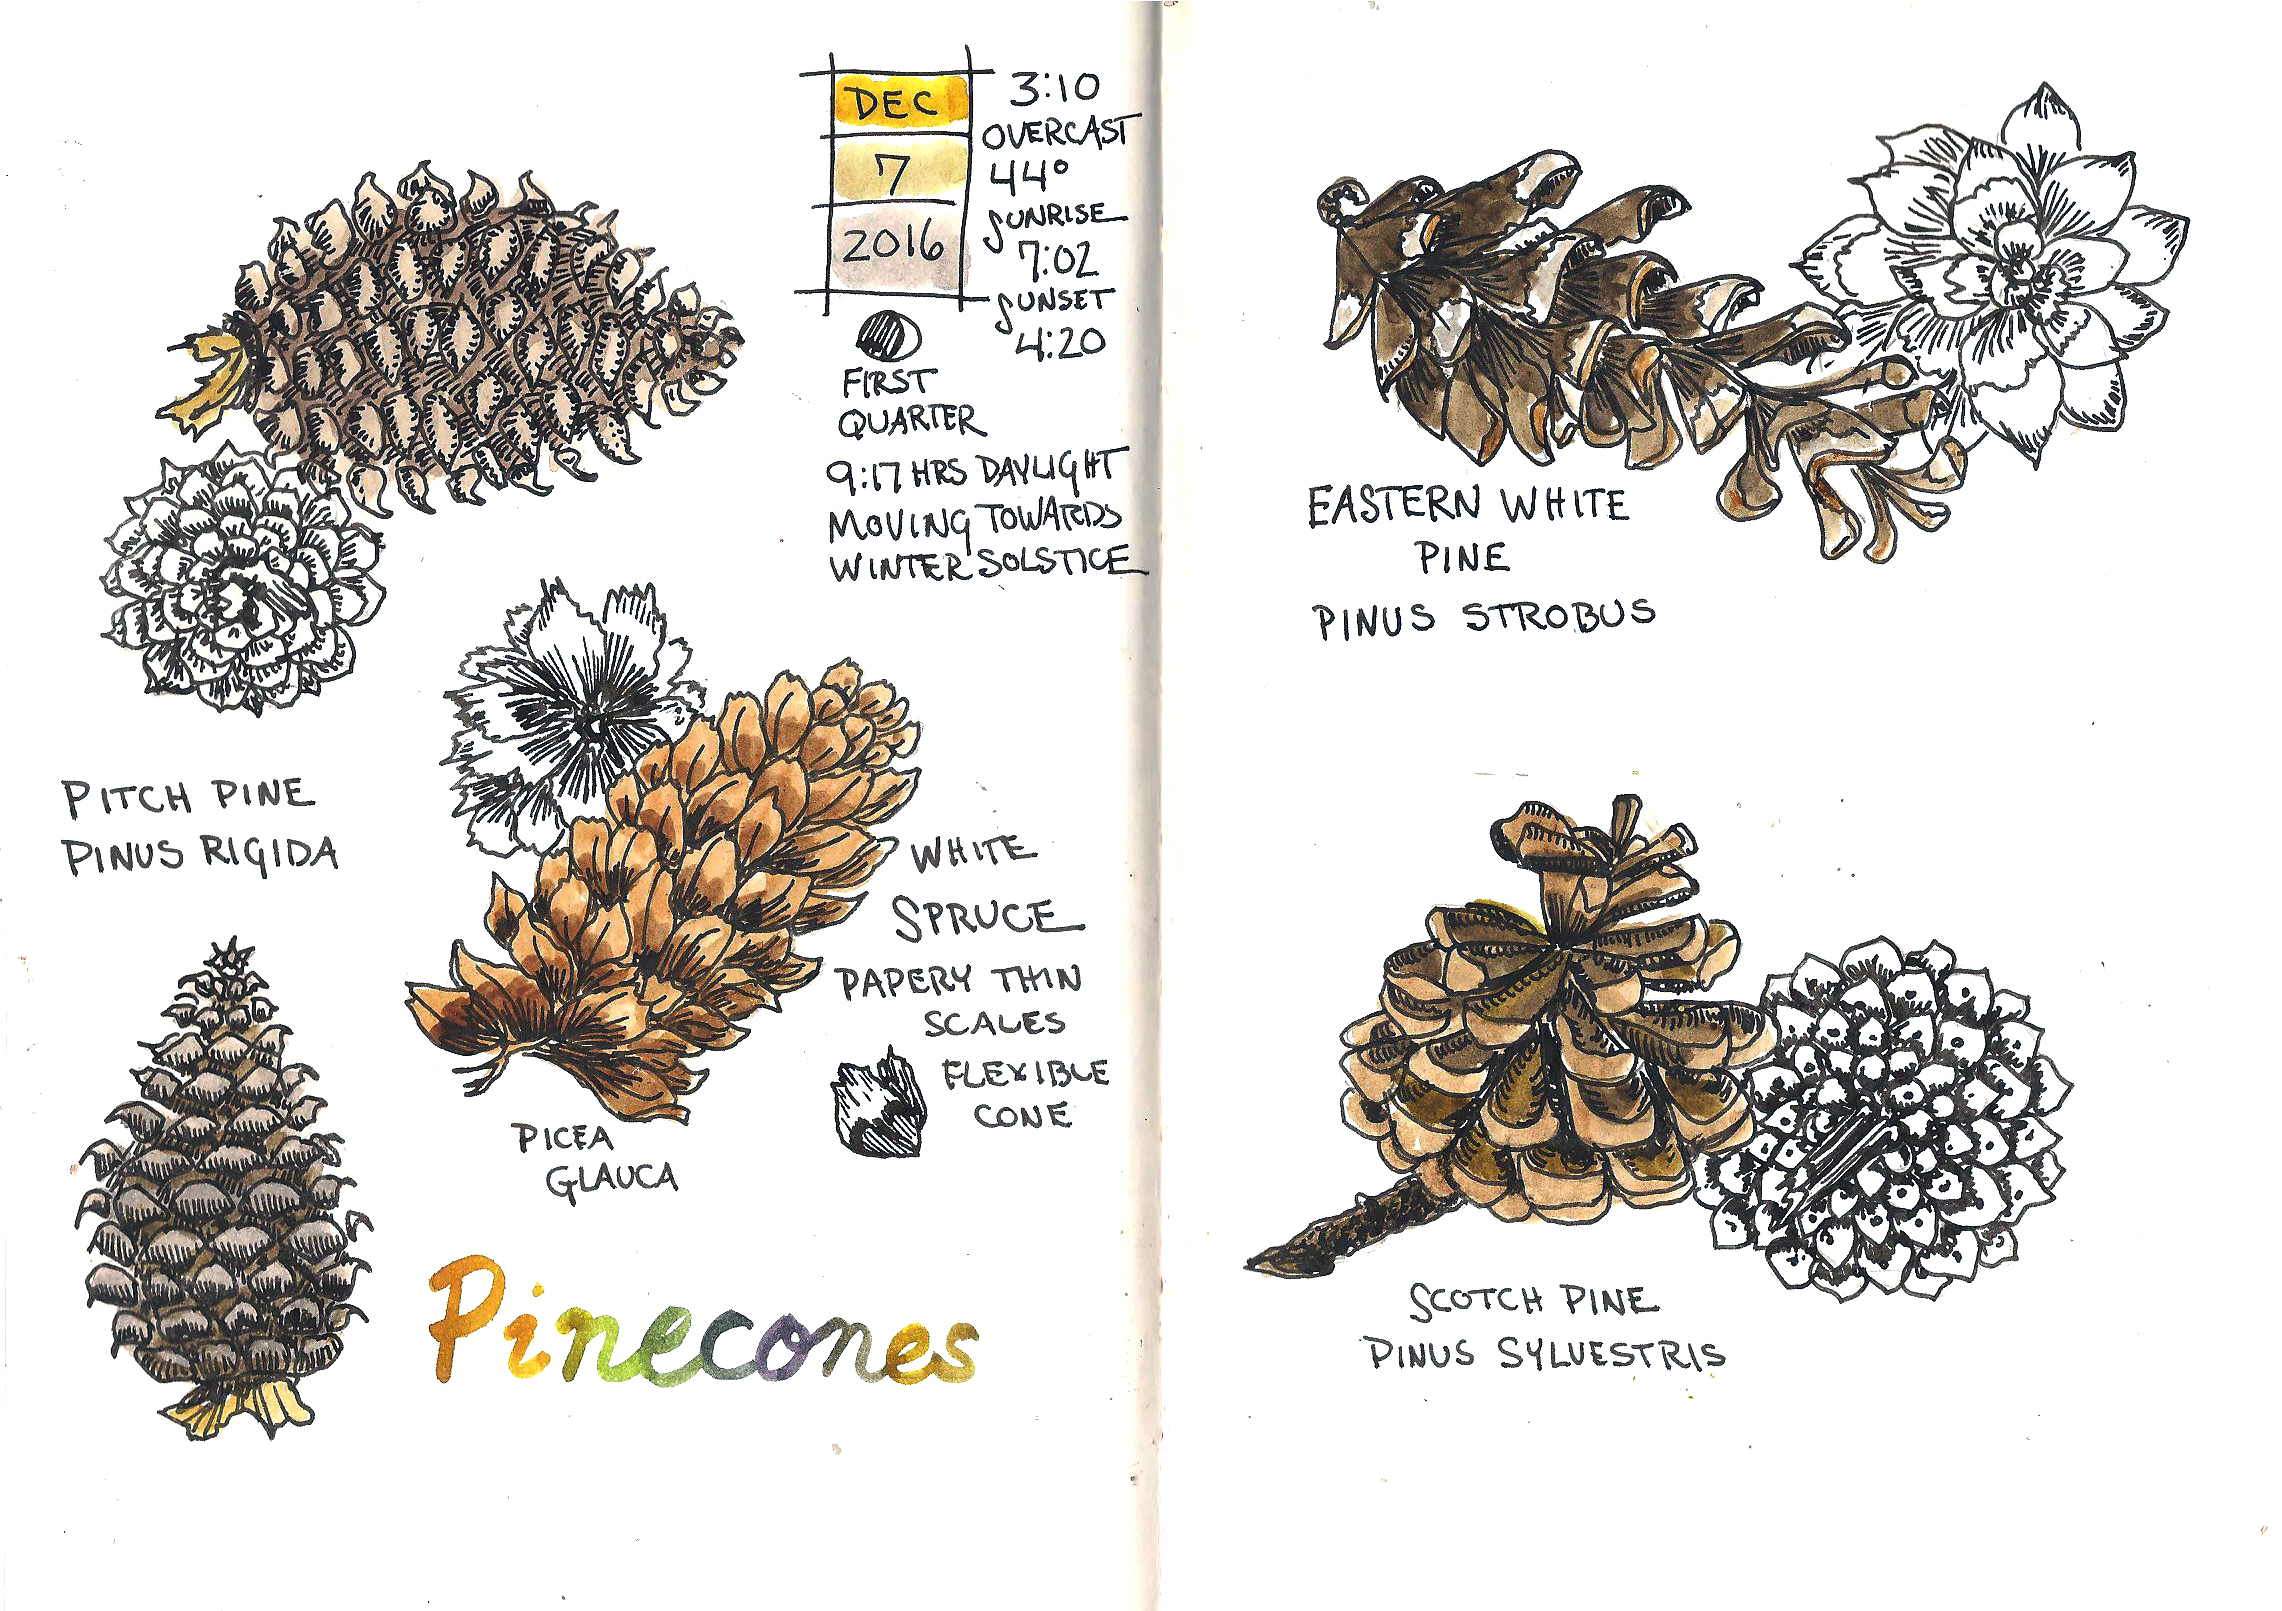 DEC
7
2016
3:10
OVERCAST
44°
SUNRISE
7:02
SUNSET
4:20
FIRST
QUARTER
9:17 HRS DAYLIGHT
MOVING TOWARDS
WINTER SOLSTICE
PITCH PINE
PINUS RIGIDA
WHITE
SPRUCE
PAPERY THIN
SCALES
FLEXIBLE
CONE
PICEA
GLAUCA
Pinecones
EASTERN WHITE
PINE
PINUS STROBUS
SCOTCH PINE
PINUS SYLVESTRIS